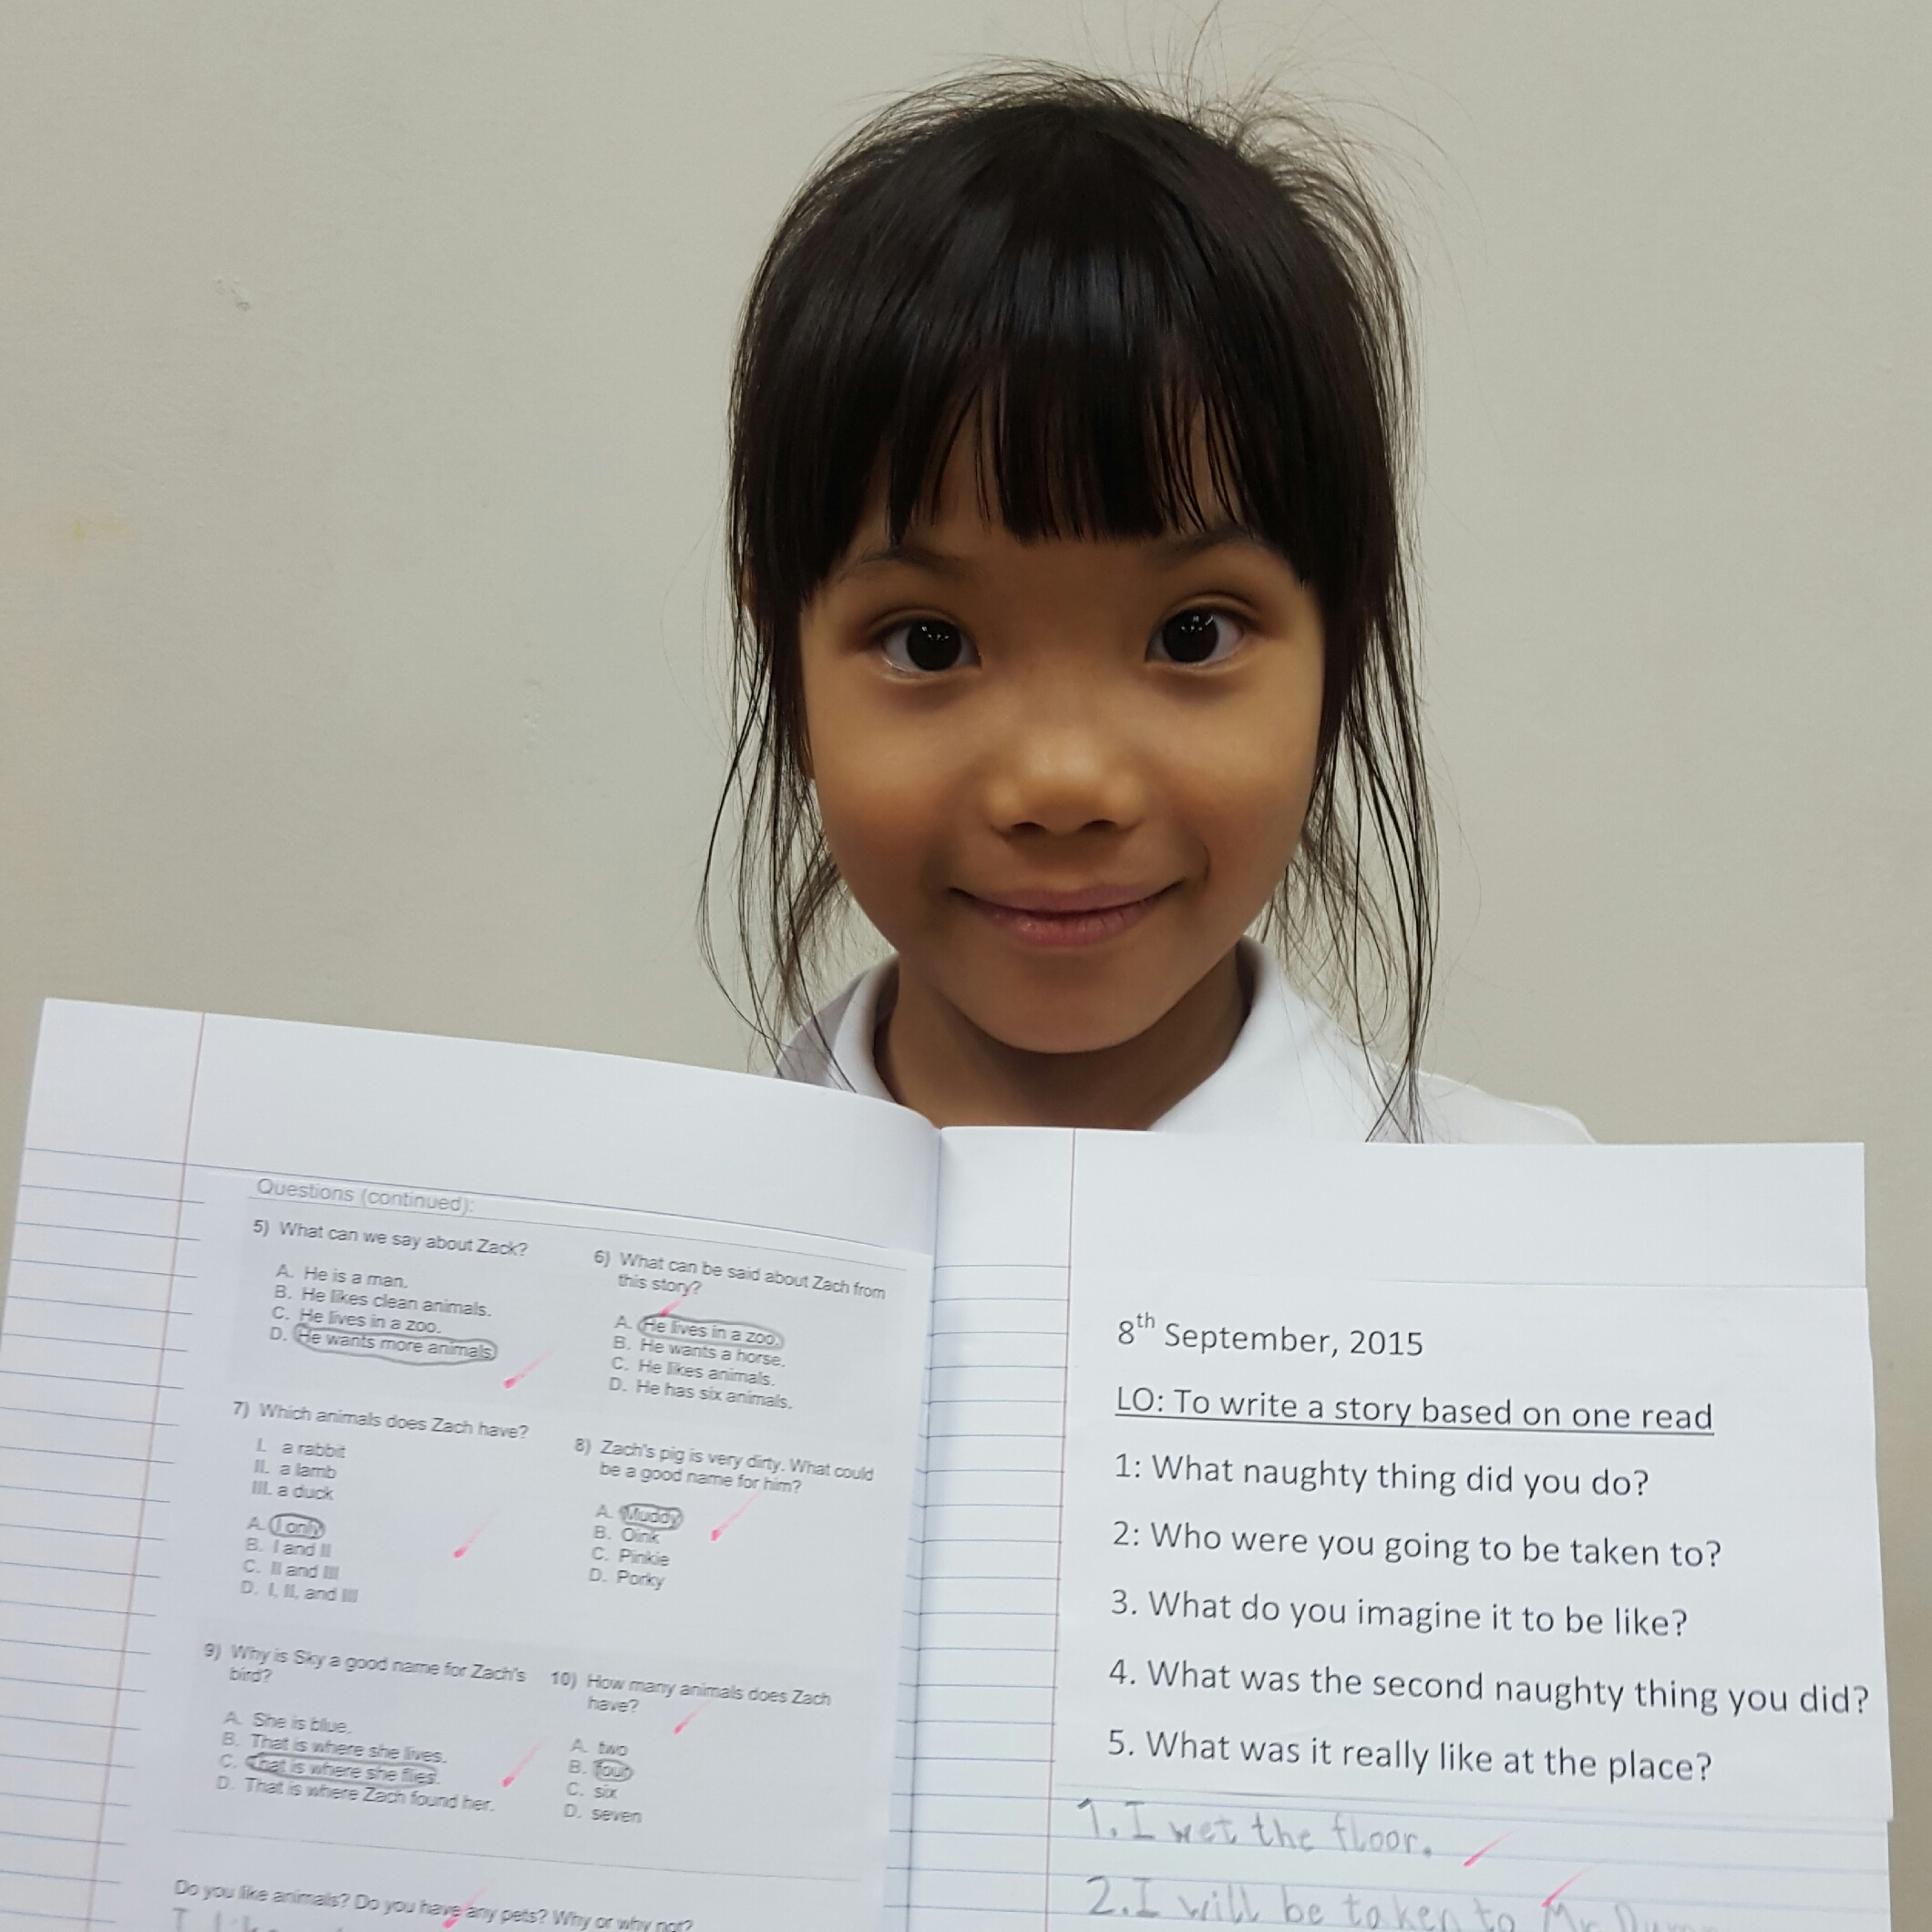 Questions (continued):
5) What can we say about Zack?
A. He is a man.
B. He likes clean animals.
C. He lives in a zoo.
D. He wants more animals.
6) What can be said about Zach from
this story?
A. He lives in a zoo.
B. He wants a horse.
C. He likes animals.
D. He has six animals.
7) Which animals does Zach have?
I. a rabbit
II. a lamb
III. a duck
A. I only
B. I and II
C. II and III
D. I, II, and III
8) Zach's pig is very dirty. What could
be a good name for him?
A. Muddy
B. Oink
C. Pinkie
D. Porky
9) Why is Sky a good name for Zach's
bird?
A. She is blue.
B. That is where she lives.
C. That is where she flies.
D. That is where Zach found her.
10) How many animals does Zach
have?
A. two
B. four
C. six
D. seven
Do you like animals? Do you have any pets? Why or why not?
I
8th September, 2015
LO: To write a story based on one read
1: What naughty thing did you do?
2: Who were you going to be taken to?
3. What do you imagine it to be like?
4. What was the second naughty thing you did?
5. What was it really like at the place?
1. I wet the floor.
2. I will be taken to Mr